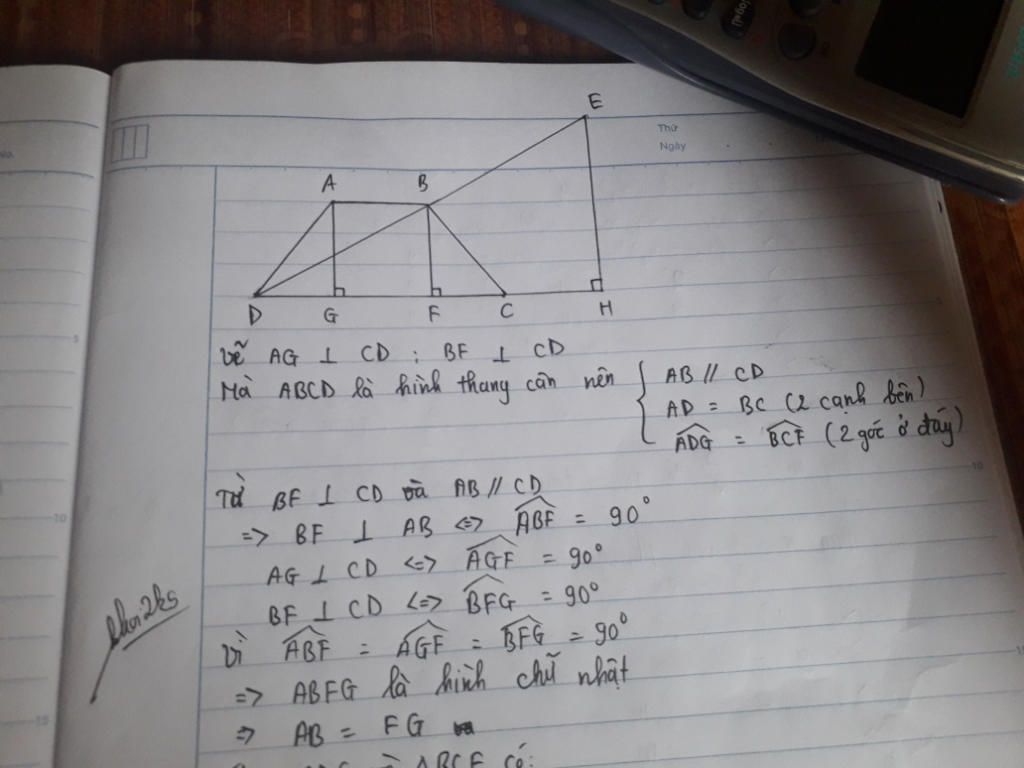 Thứ
Ngày
E
A B
D G F C H
Vẽ AG ⊥ CD ; BF ⊥ CD
Mà ABCD là hình thang cân nên { AB // CD
AD = BC (2 cạnh bên)
ADG = BCF (2 góc ở đáy)
Từ BF ⊥ CD và AB // CD
=> BF ⊥ AB <=> ABF = 90°
AG ⊥ CD <=> AGF = 90°
BF ⊥ CD <=> BFG = 90°
Vì ABF = AGF = BFG = 90°
=> ABFG là hình chữ nhật
=> AB = FG
ΔBCF có:
5
10
15
10